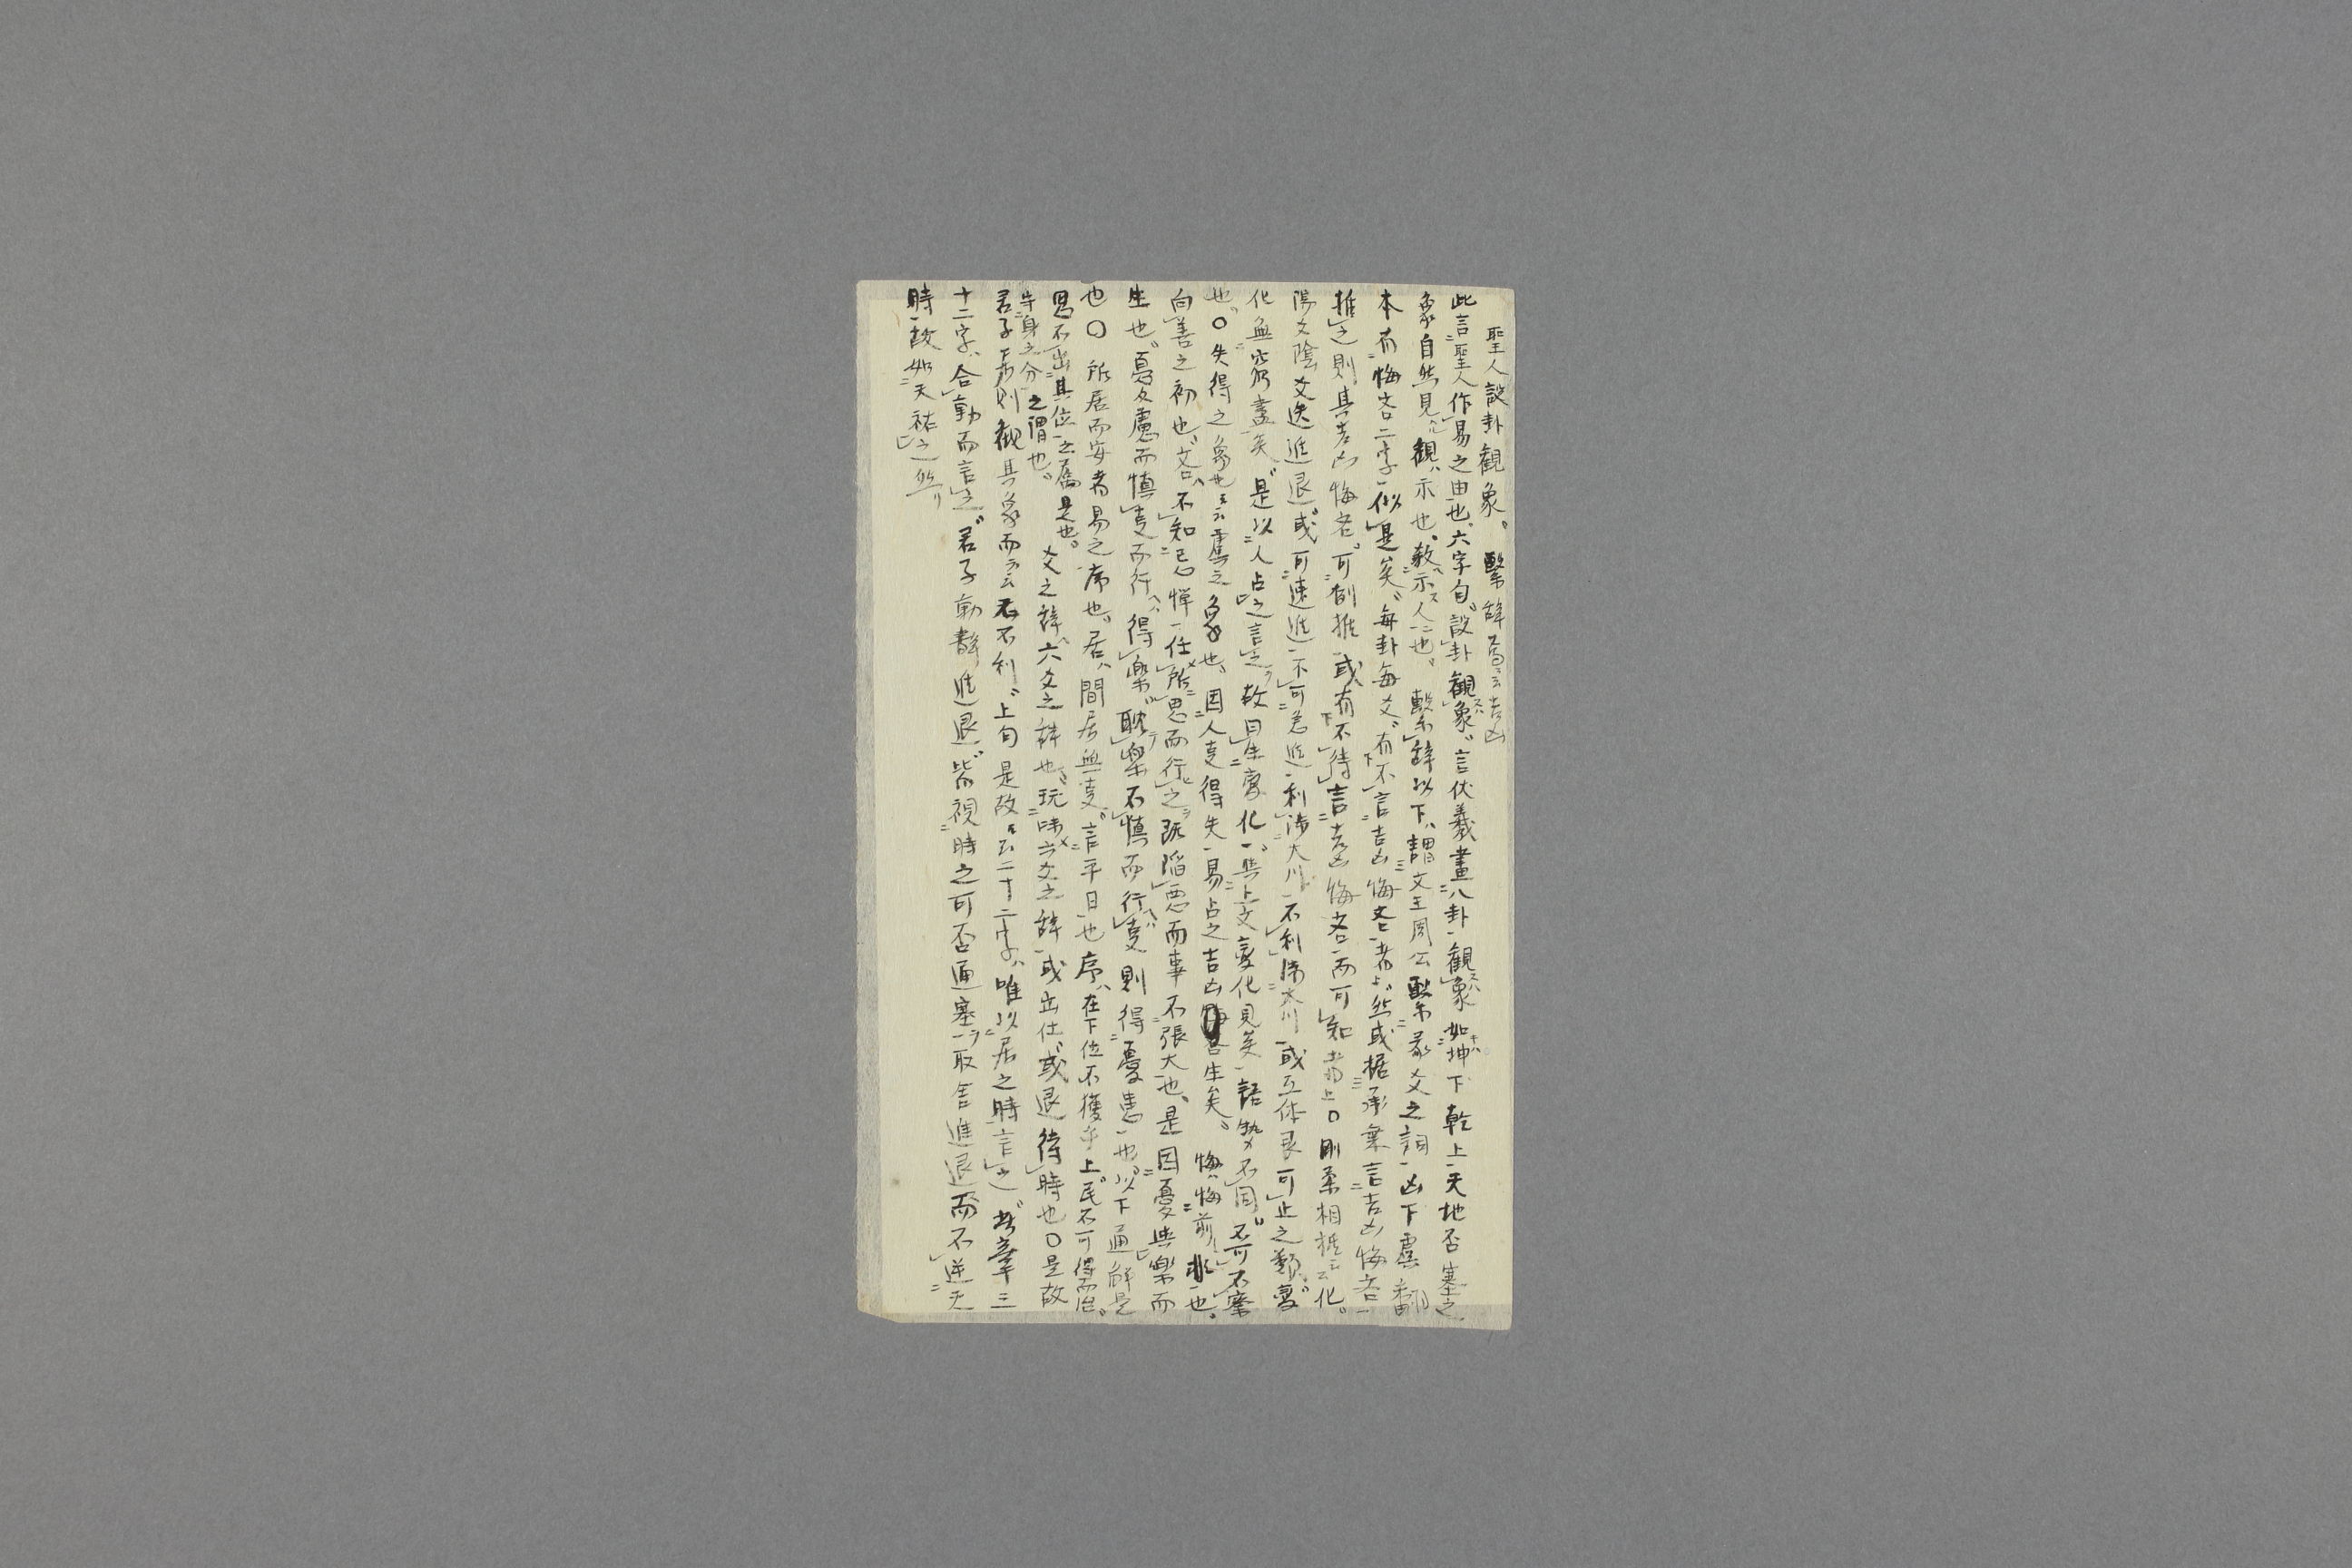 聖人設卦観象。繫辞焉云云吉凶
此言聖人作易之由也、六字句、設卦観象、言伏羲畫八卦、観象、如坤下乾上、天地否塞之
象自然見、観、示也、教示人也、繫辞以下、謂文王周公繫彖爻之詞、凶下虞翻
本有悔吝二字、似是矣、毎卦毎爻、有不言吉凶悔吝者、然或據承乗言吉凶悔吝
推之則其吉凶悔吝、可例推、或有不待言吉凶悔吝、而可知者上〇剛柔相推云云化。
陽爻陰爻迭進退、或可速進、不可急進、利涉大川、不利涉大川、或互体艮可止之類、変
化無窮盡矣、是以人占之言之、故曰生変化、與上文変化見矣、語勢不同、不可不察
也。〇失得之象也云云虞之象也、因人叓得失、易占之吉凶吝生矣。悔、悔前非也。
向善之初也、吝、不知忌惮、任所思而行之、既陷悪而事不張大也、是因憂與楽而
生也、憂虞而慎叓而行、得楽、耽楽不慎而行叓、則得憂患也、以下通解是
也〇所居而安者易之序也。居、間居無叓、言平日也、序、在下位不獲乎上。民不可得而治。
思不出其位之属是也。爻之辞、六爻之辞也、玩味六爻之辞、或出仕、或退待時也〇是故
守身之分之謂也。
君子居則観其象而云云不利、上句是故云云二十二字、唯以居之時言之、此章三
十二字、合動而言之、君子動静進退、皆視時之可否通塞、取舎進退而不逆天
時、故如天祐之然